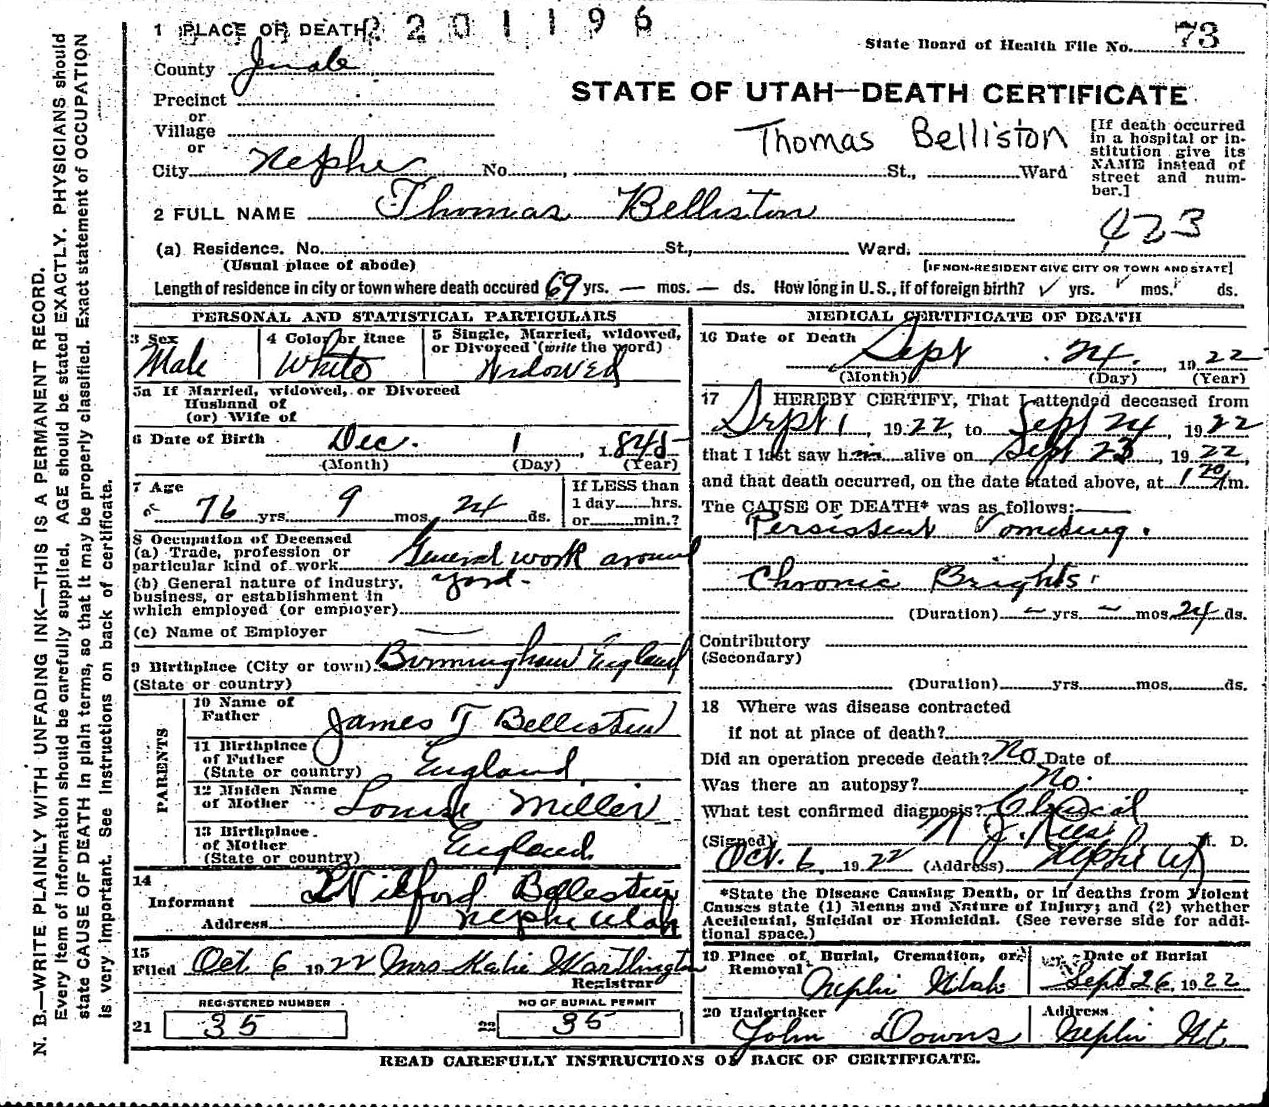 1 PLACE OF DEATH 2201196
State Board of Health File No. 73
County Juab
STATE OF UTAH—DEATH CERTIFICATE
Precinct
or
Village
or
City Nephi No. , St., Ward
Thomas Belliston
[If death occurred in a hospital or in-
stitution give its
NAME instead of
street and num-
ber.]
2 FULL NAME Thomas Belliston
(a) Residence. No. St., Ward.
(Usual place of abode)
[IF NON-RESIDENT GIVE CITY OR TOWN AND STATE]
Length of residence in city or town where death occured 69 yrs. — mos. — ds. How long in U.S., if of foreign birth? ✓ yrs. mos. ds.
PERSONAL AND STATISTICAL PARTICULARS
3 Sex
Male
4 Color or Race
White
5 Single, Married, widowed,
or Divorced (write the word)
Widowed
5a If Married, widowed, or Divorced
Husband of
(or) Wife of
6 Date of Birth Dec. 1, 1845
(Month) (Day) (Year)
7 Age
76 yrs. 9 mos. 24 ds.
If LESS than
1 day hrs.
or min.?
8 Occupation of Deceased
(a) Trade, profession or
particular kind of work General work around
(b) General nature of industry, yard.
business, or establishment in
which employed (or employer)
(c) Name of Employer —
9 Birthplace (City or town) Birmingham England
(State or country)
PARENTS
10 Name of
Father James T Belliston
11 Birthplace
of Father
(State or country) England
12 Maiden Name
of Mother Louise Miller
13 Birthplace.
of Mother
(State or country) England
14
Informant Wilford Belliston
Address Nephi Utah
15
Filed Oct 6 1922 Mrs Katie Warthington
Registrar
REGISTERED NUMBER
21 35
NO OF BURIAL PERMIT
22 35
MEDICAL CERTIFICATE OF DEATH
16 Date of Death
Sept 24. 1922
(Month) (Day) (Year)
17 HEREBY CERTIFY, That I attended deceased from
Sept 1, 1922, to Sept 24, 1922
that I last saw him alive on Sept 23, 1922,
and that death occurred, on the date stated above, at m.
The CAUSE OF DEATH* was as follows:
Persistent Vomiting.
Chronic Brights
(Duration) – yrs. – mos. 24 ds.
Contributory
(Secondary)
(Duration) yrs. mos. ds.
18 Where was disease contracted
if not at place of death?
Did an operation precede death? No Date of
Was there an autopsy? No.
What test confirmed diagnosis? Clinical
(Signed) M. D.
Oct. 6, 1922 (Address) Nephi Ut
*State the Disease Causing Death, or in deaths from Violent
Causes state (1) Means and Nature of Injury; and (2) whether
Accidental, Suicidal or Homicidal. (See reverse side for addi-
tional space.)
19 Place of Burial, Cremation, or
Removal Nephi Utah
Date of Burial
Sept 26, 1922
20 Undertaker
John Downs
Address
Nephi Ut.
READ CAREFULLY INSTRUCTIONS ON BACK OF CERTIFICATE.
N. B.—WRITE PLAINLY WITH UNFADING INK—THIS IS A PERMANENT RECORD.
Every item of information should be carefully supplied. AGE should be stated EXACTLY. PHYSICIANS should
state CAUSE OF DEATH in plain terms, so that it may be properly classified. Exact statement of OCCUPATION
is very important. See instructions on back of certificate.